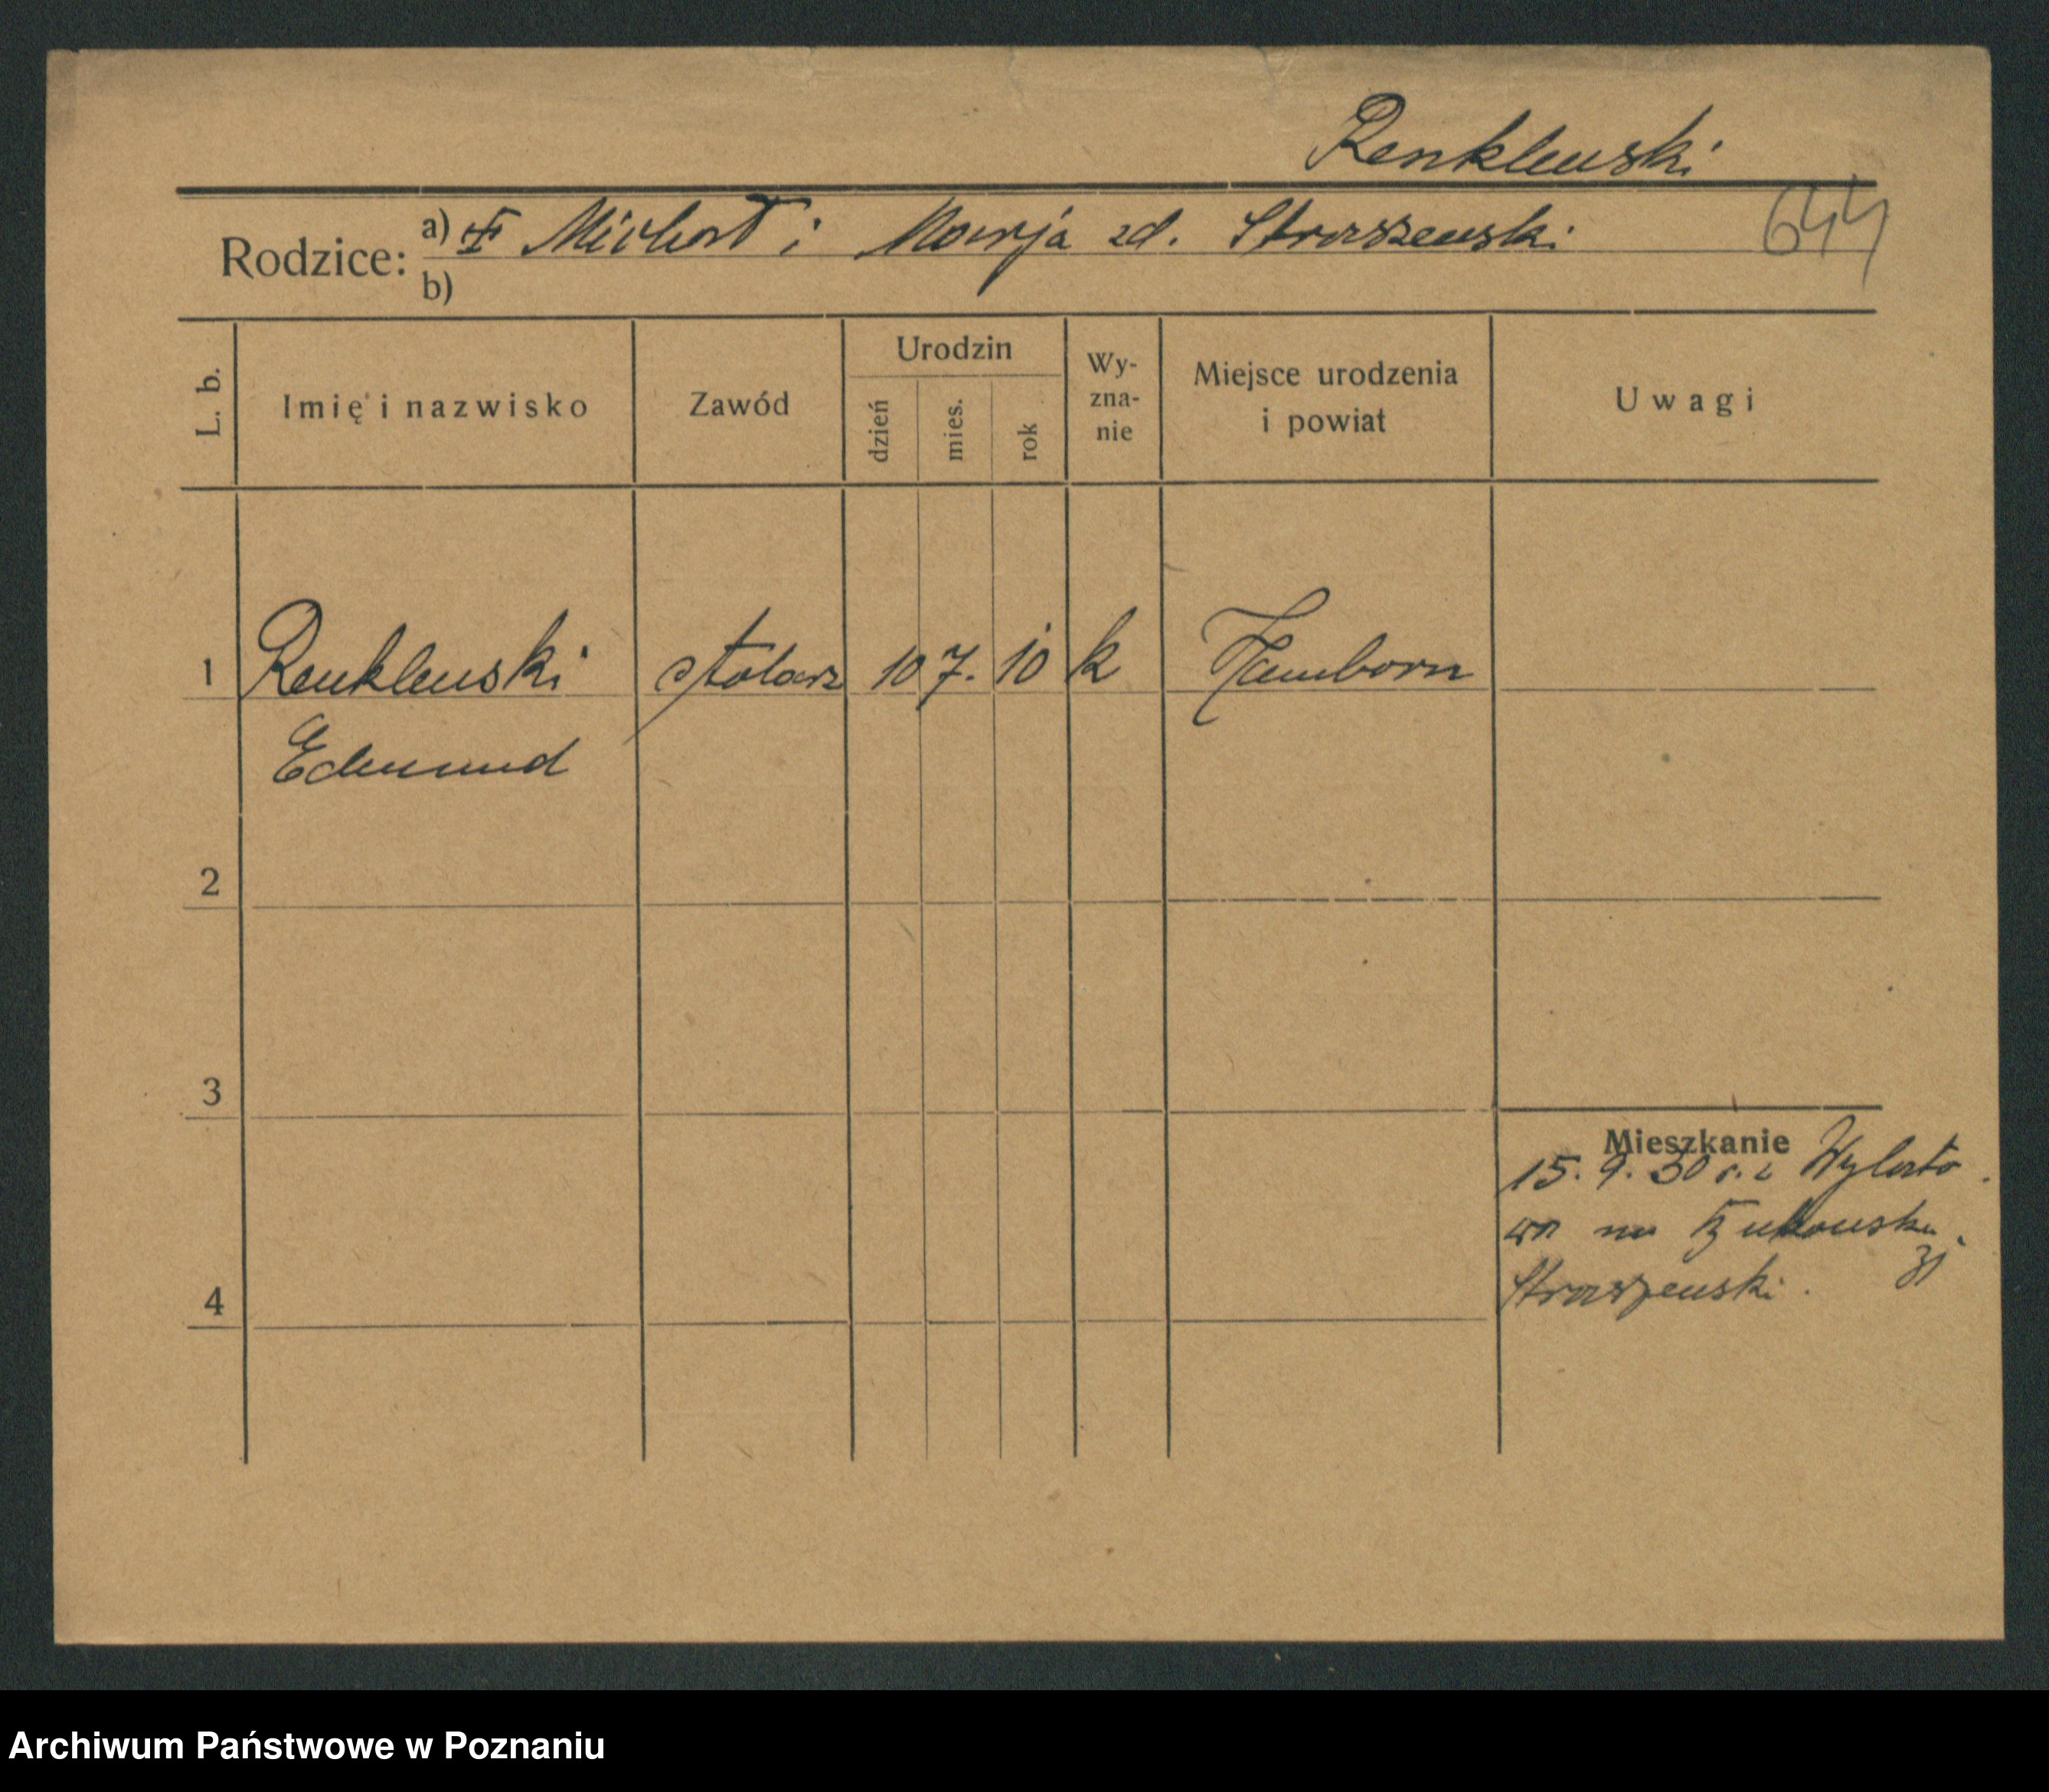 Renklewski
Rodzice: a) Michał i Marja zd. Straszewski 644
b)
L. b. Imię i nazwisko Zawód Urodzin dzień mies. rok Wy-zna-nie Miejsce urodzenia i powiat Uwagi
1 Renklewski stolarz 10 7. 10 k Hamborn
Edmund
2
3
Mieszkanie
15. 9. 30 r. z Wylato
wa na Żukowska 31
4 Straszewski.
Archiwum Państwowe w Poznaniu